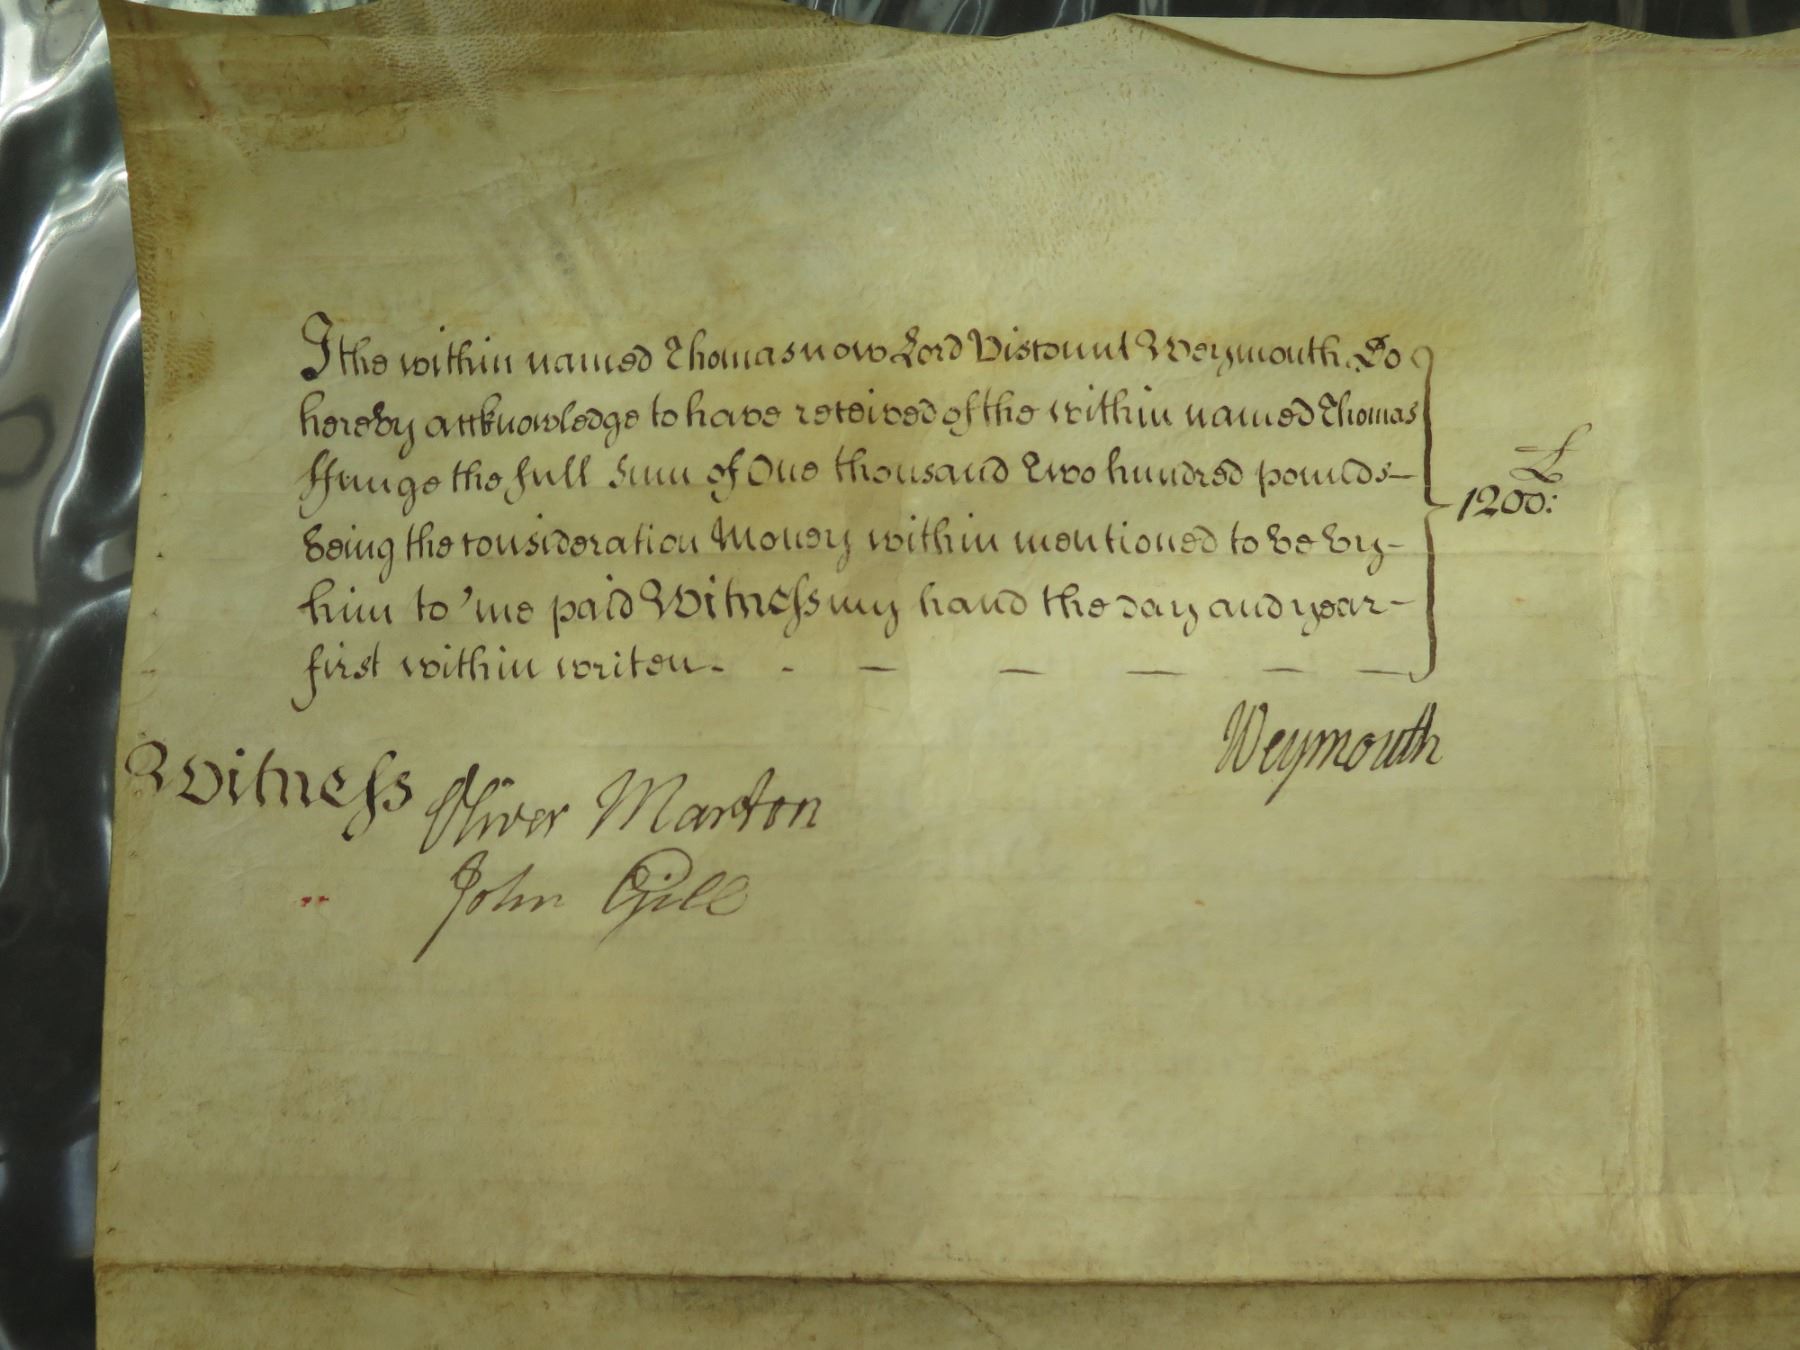 I the within named Thomas now Lord Viscount Weymouth Do
hereby acknowledge to have received of the within named Thomas
ffunge the full Sum of One thousand Two hundred pounds—
being the consideration Money within mentioned to be by—
him to me paid Witness my hand the day and year—
first within writen - - — — — — —
£
1200:
Weymouth
Witness Oliver Marton
John Gill